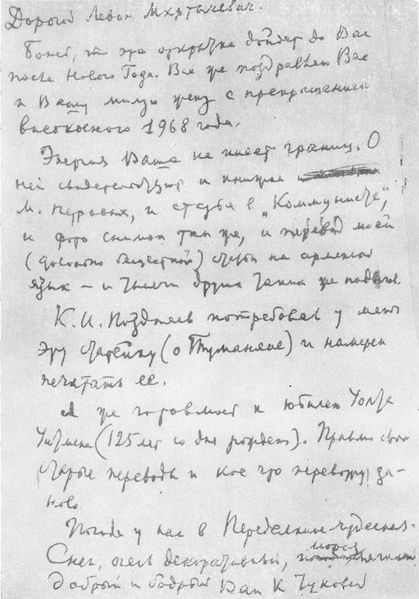 Дорогой Левон Мкртычевич.
Боюсь, что эта открытка дойдет до Вас
после Нового Года. Все же поздравляю Вас
и Вашу милую жену с прекращением
високосного 1968 года.
Энергия Ваша не имеет границ. О
ней свидетельствует и книжка
М. Петровых, и статья в „Коммунисте",
и фото снимок там же, и перевод моей
(довольно) статьи на армянский
язык – и тысячи других таких же
К. И. Поздняев потребовал у меня
эту статейку (о Туманяне) и намерен
печатать ее.
Я же готовлюсь к юбилею Уолта
Уитмена (125 лет со дня рождения). Правлю свои
старые переводы и кое что перевожу за-
ново.
Погода у нас в Переделкине чудесная.
Снег, очень декоративный, мороз
добрый и бодрый Ваш К Чуковский